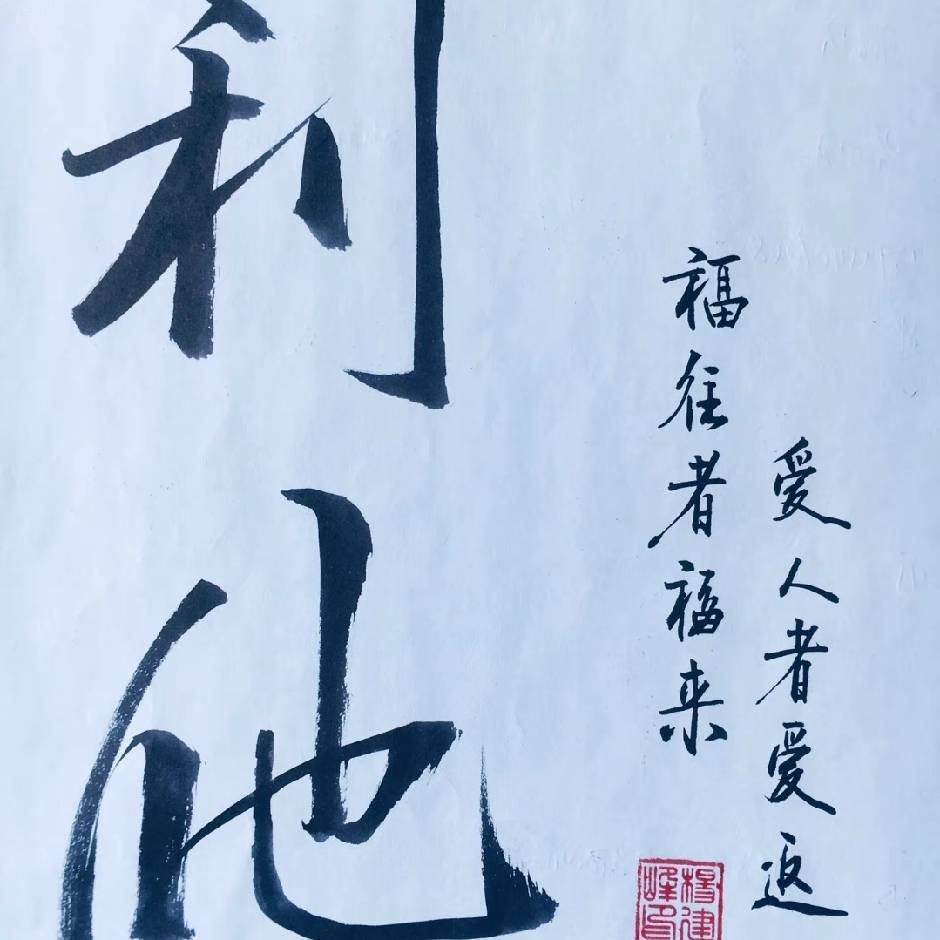 利他
爱人者爱返
福往者福来
杨建峰印